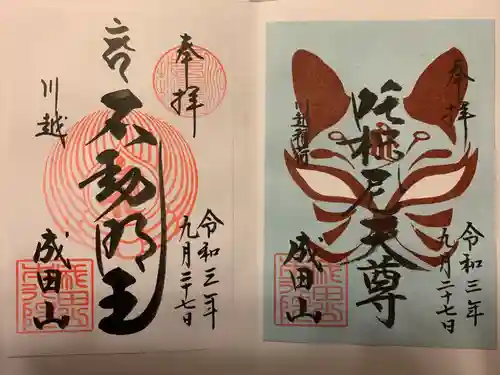 奉拝
吒枳尼天尊
川越稲荷
成田山
令和三年
九月二十七日
奉拝
不動明王
川越
成田山
令和三年
九月二十七日